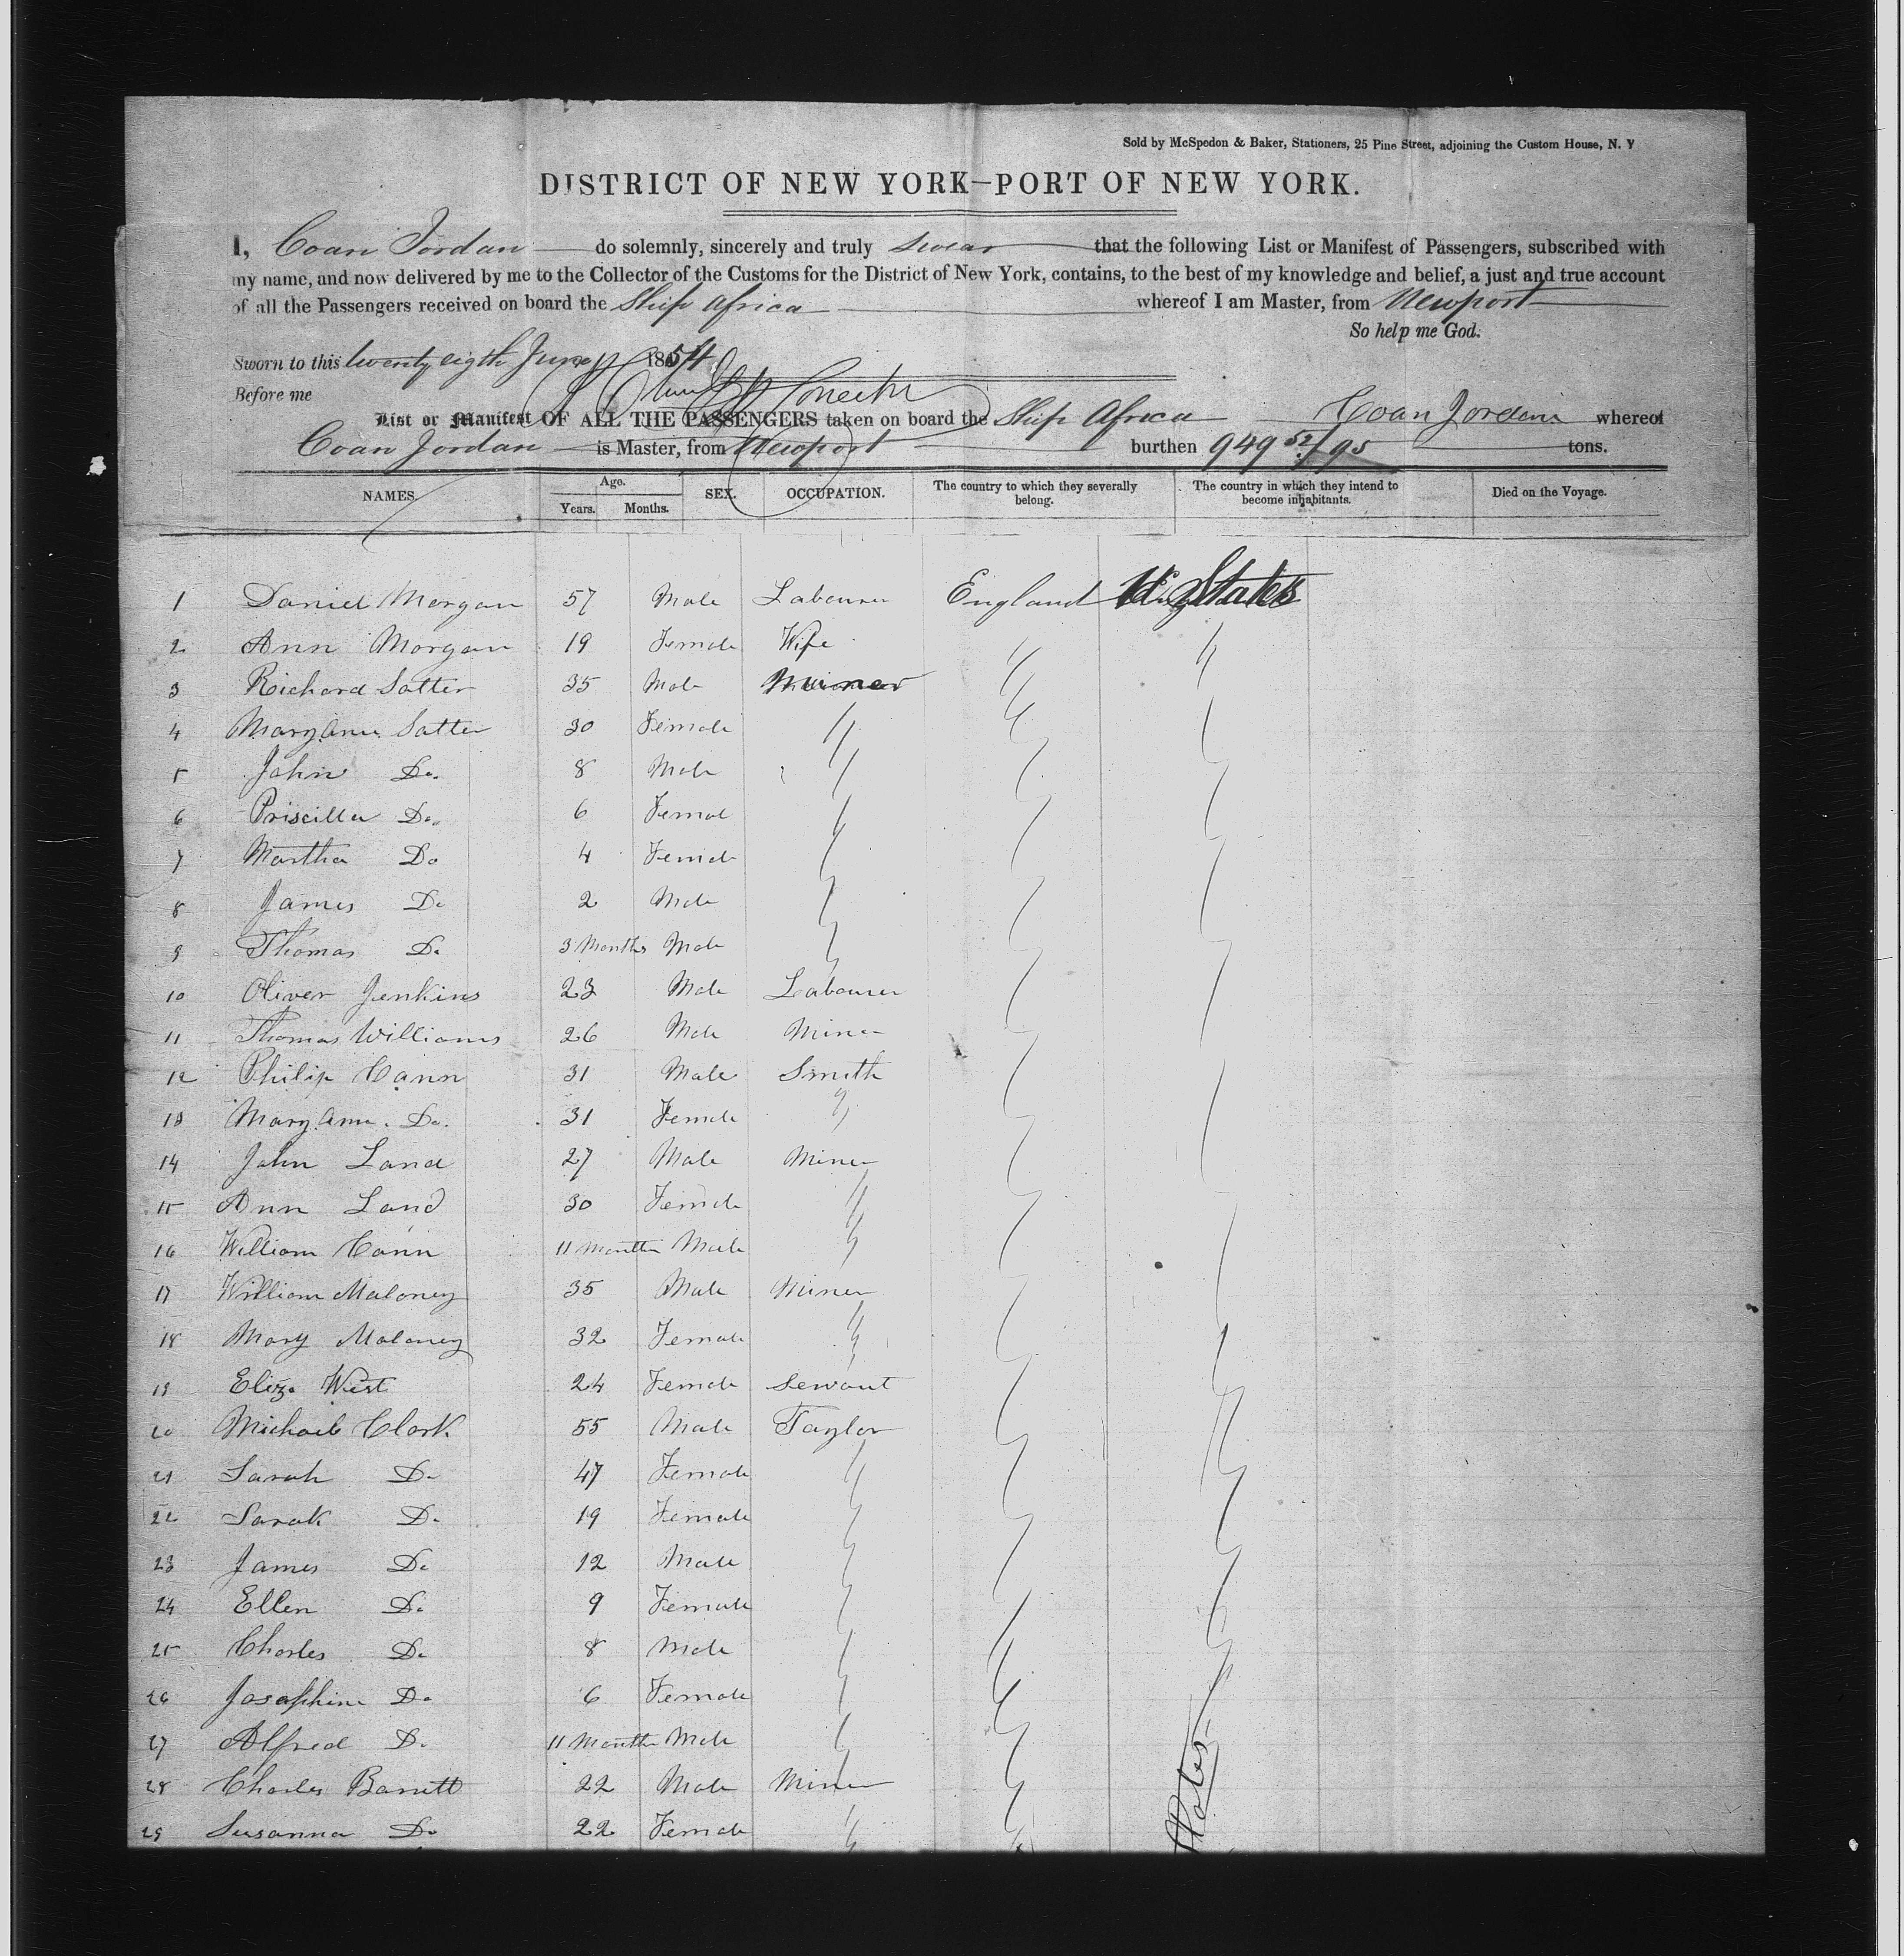 Sold by McSpedon & Baker, Stationers, 25 Pine Street, adjoining the Custom House, N. Y
DISTRICT OF NEW YORK—PORT OF NEW YORK.
I, Coan Jordan do solemnly, sincerely and truly swear that the following List or Manifest of Passengers, subscribed with
my name, and now delivered by me to the Collector of the Customs for the District of New York, contains, to the best of my knowledge and belief, a just and true account
of all the Passengers received on board the Ship Africa whereof I am Master, from Newport
So help me God.
Sworn to this twenty eigth June 1854
Before me
Coan Jordan
List or Manifest OF ALL THE PASSENGERS taken on board the Ship Africa whereof
Coan Jordan is Master, from Newport burthen 949 52/95 tons.
NAMES. Age. Years. Months. SEX. OCCUPATION. The country to which they severally belong. The country in which they intend to become inhabitants. Died on the Voyage.
1 Daniel Morgan 57 Male Labourer England U. States
2 Ann Morgan 19 Female Wife " "
3 Richard Salter 35 Male Miner "
4 Mary Ann Salter 30 Female " "
5 John Do. 8 Male "
6 Priscilla Do. 6 Femal "
7 Martha Do 4 Female "
8 James Do 2 Male "
9 Thomas Do 3 Months Male "
10 Oliver Jenkins 23 Male Labourer
11 Thomas Williams 26 Male Miner
12 Philip Cann 31 Male Smith
13 Mary Ann Do. 31 Female "
14 John Land 27 Male Miner
15 Ann Land 30 Female "
16 William Cann 11 Months Male "
17 William Maloney 35 Male Miner
18 Mary Maloney 32 Female "
19 Eliza West 24 Female Servant
20 Michael Clark 55 Male Taylor
21 Sarah Do 47 Female "
22 Sarah Do 19 Female "
23 James Do 12 Male "
24 Ellen Do 9 Female "
25 Charles Do 8 Male "
26 Josephine Do 6 Female "
27 Alfred Do 11 Months Male "
28 Charles Barrett 22 Male Miner "
29 Susanna Do 22 Female " "
States